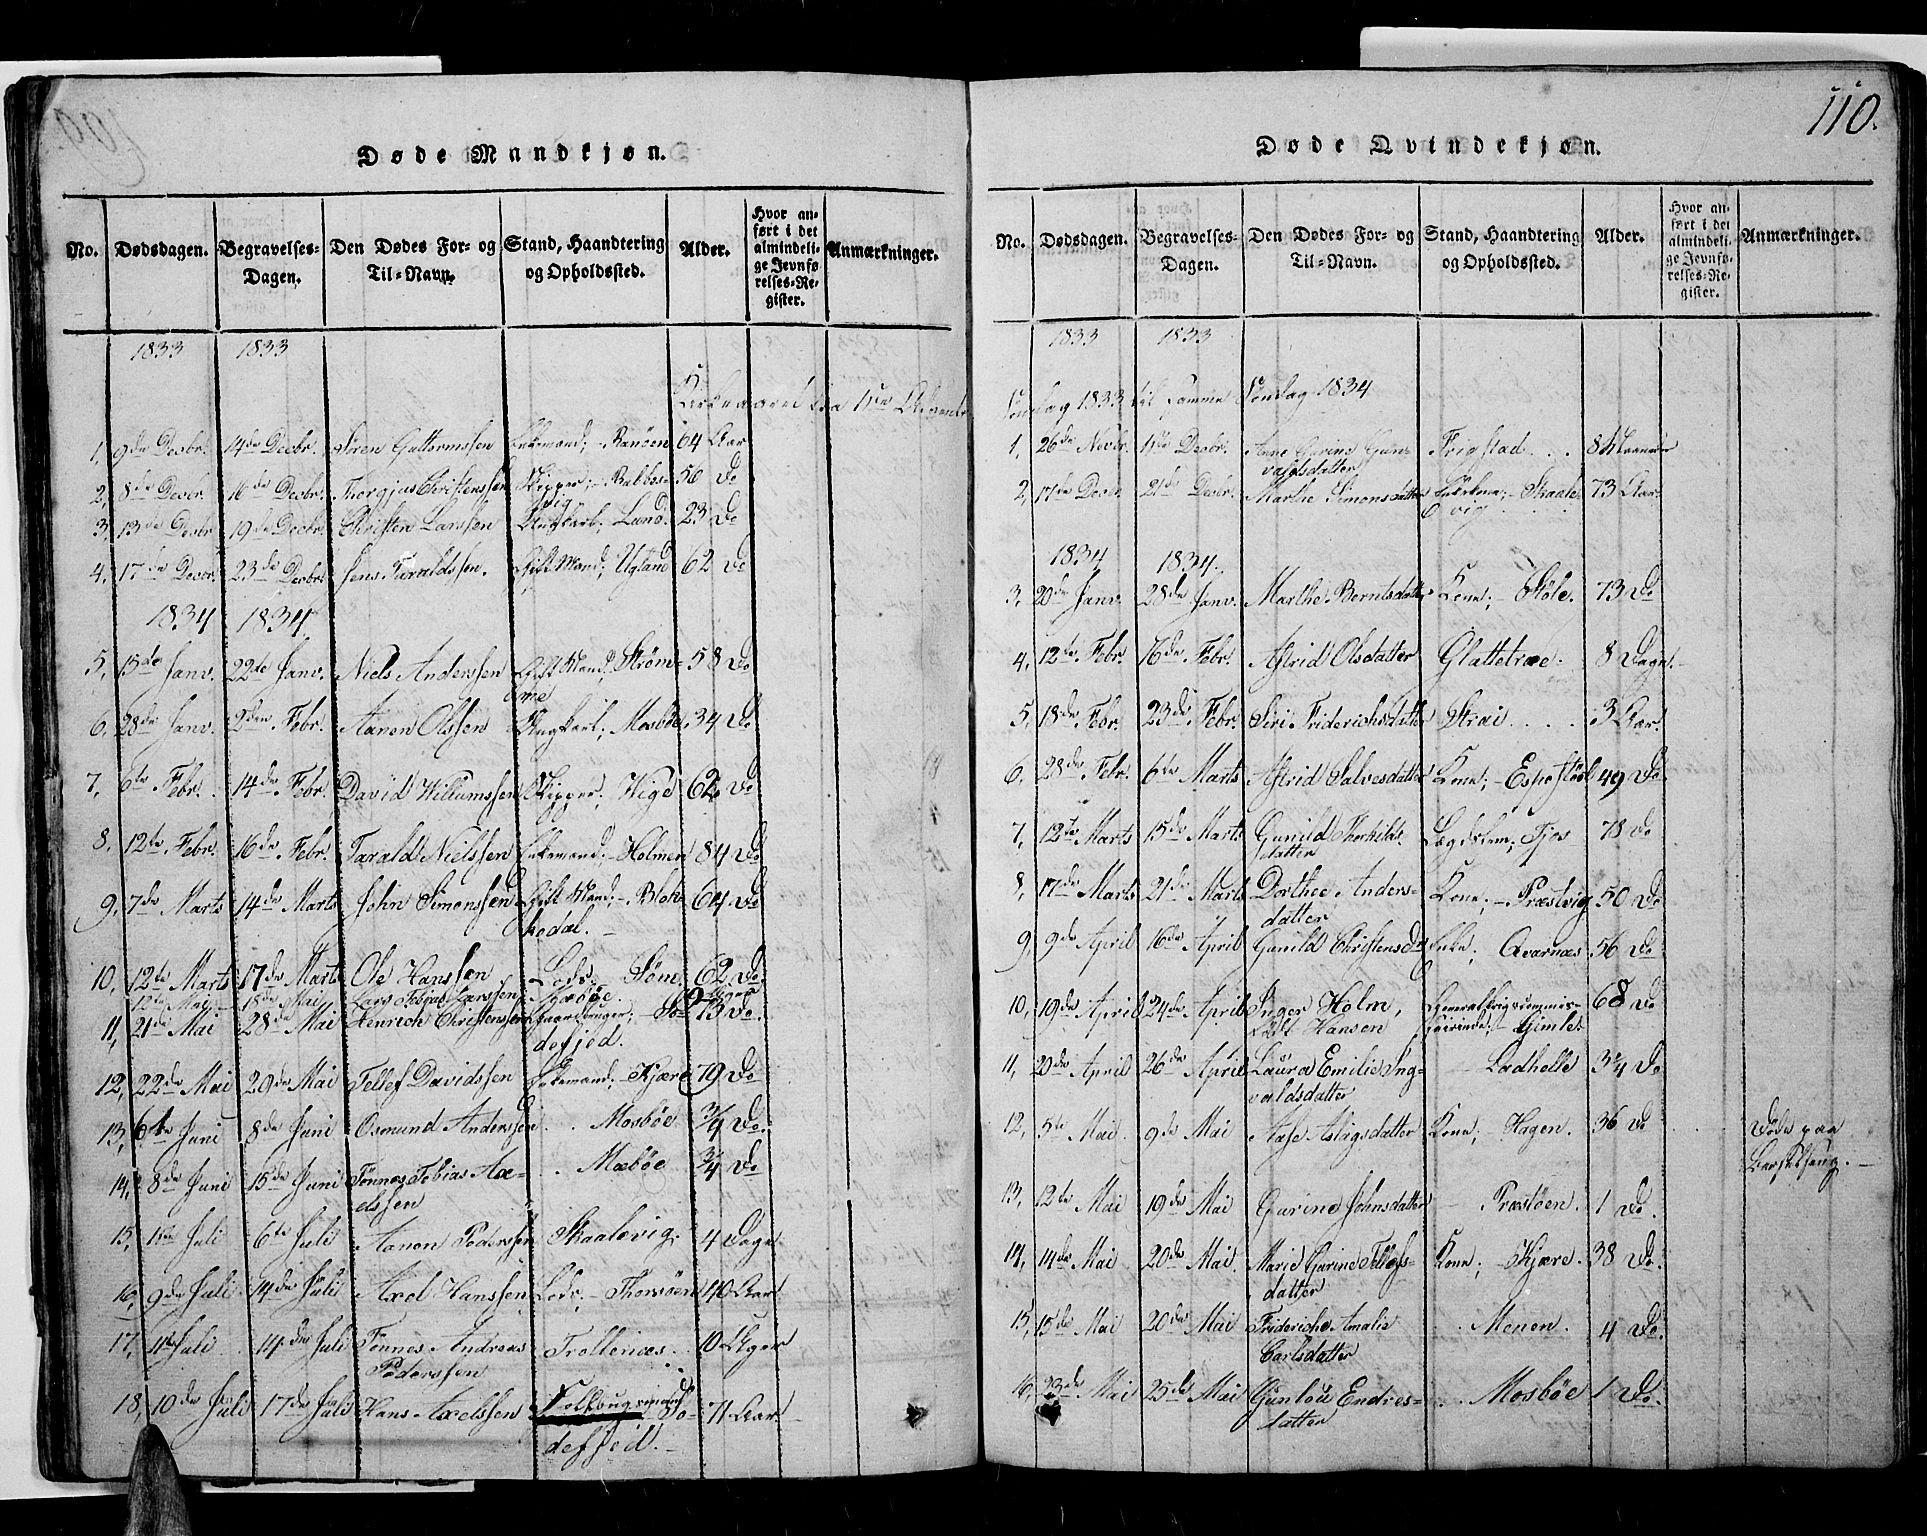 Døde Mandkjøn.
No. Dødsdagen. Begravelses-Dagen. Den Dødes For- og Til-Navn. Stand, Haandtering og Opholdssted. Alder. Hvor anført i det almindelige Jevnførelses-Register. Anmærkninger.
1833 1833
Kirkeaaret fra 1ste Advents
1, 9de Decbr. 14de Decbr. Søren Guttormsen Enkemand; Randøen 64 Aar
2, 8de Decbr. 16de Decbr. Thorgius Christenssen Skipper; Rabbes-
vig 56 Do
3, 13de Decbr. 19de Decbr. Christen Larssen Ungkarl; Lund. 23 Do
4, 17de Decbr. 23de Decbr. Jens Taraldssen. Gift Mand; Ugland 62 Do
1834 1834
5, 15de Janv. 22de Janv. Niels Anderssen Gift Mand; Strøm-
me 58 Do
6, 28de Janv. 2den Febr. Aanon Olssen Ungkarl; Mosbøe, 34 Do
7, 6te Febr. 14de Febr. David Willumssen Skipper; Hege 62 Do
8, 12te Febr. 16de Febr. Tarald Nielssen Enkemand; Holmen 84 Do
9, 7de Marts 14de Marts John Simonssen Gift Mand; Blok-
hodal. 64 Do
10, 12te Marts 17de Marts Ole Hanssen Lods; Søm. 62 Do
12te Mai 18de Mai Lars Tobias Larssen;
11, 21de Mai 28de Mai Henrich Christenssen Gaardbruger; Do-
desfjed. 73 Do.
12, 22de Mai 29de Mai Tellef Davidssen Enkemand; Kjære 79 Do
13, 6te Juni 8de Juni Osmund Anderssen Mosbøe 3/4 Do
14, 8de Juni 15de Juni Tønnes Tobias Ax-
elssen Mæbøe 3/4 Do
15, 1ste Juli 6te Juli Aanon Pederssen Skaalevig. 4 Dage
16, 9de Juli 14de Juli Axel Hanssen Lods; Thorsøen 40 Aar
17, 11te Juli 14de Juli Tønnes Andreas
Pederssen Trollenæs 10 Uger
18, 10de Juli 17de Juli Hans Axelssen Do-
desfjed. 71 Aar
110.
Døde Qvindekjøn.
No. Dødsdagen. Begravelses-Dagen. Den Dødes For- og Til-Navn. Stand, Haandtering og Opholdssted. Alder. Hvor anført i det almindelige Jevnførelses-Register. Anmærkninger.
1833 1833
Søndag 1833 til samme Søndag 1834
1, 26de Novbr. 1ste Decbr. Anne Gurine Gun-
valdsdatter Frigstad 8 Maaneder
2, 17de Decbr. 21de Decbr. Marthe Simonsdatter Enke; Skaale-
vig 73 Aar.
1834 1834
3, 20de Janv. 28de Janv. Marthe Berntsdatter Kone; Støle. 73 Do
4, 12te Febr. 16de Febr. Astrid Olsdatter Glattetræe. 8 Dage.
5, 18de Febr. 23de Febr. Siri Friderichsdatter Strai 3 Aar.
6, 28de Febr. 6te Marts Astrid Salvesdatter Kone; 49 Do
7, 12te Marts 15de Marts Gunild Thorkilds-
datter Lægdslem; Tjos 78 Do
8, 17de Marts 21de Marts Dorthee Anders-
datter Kone; Præstvig 50 Do
9, 9de April 16de April Gunild Christensdr Enke; Qvarnæs 56 Do
10, 19de April 24de April Inger Holm,
født Hansen Generalkrigscommis-
sairinde; Gimle. 68 Do
11, 20de April 26de April Laura Emilie Ing-
valdsdatter Ladhelle 3 3/4 Do
12, 5te Mai 9de Mai Aase Aslagsdatter Kone; Hagen. 36 Do Døde paa
Barselseng.
13, 12te Mai 19de Mai Gurine Johnsdatter Præstøen. 1 Do.
14, 14de Mai 20de Mai. Marie Gurine Tellefs-
datter Kone; Kjære. 38 Do.
15, 15de Mai 20de Mai Frideriche Amalie
Carlsdatter Monen. 4 Do.
16, 23de Mai 25de Mai Gunlou Endres-
datter Mosbøe 1 Do.